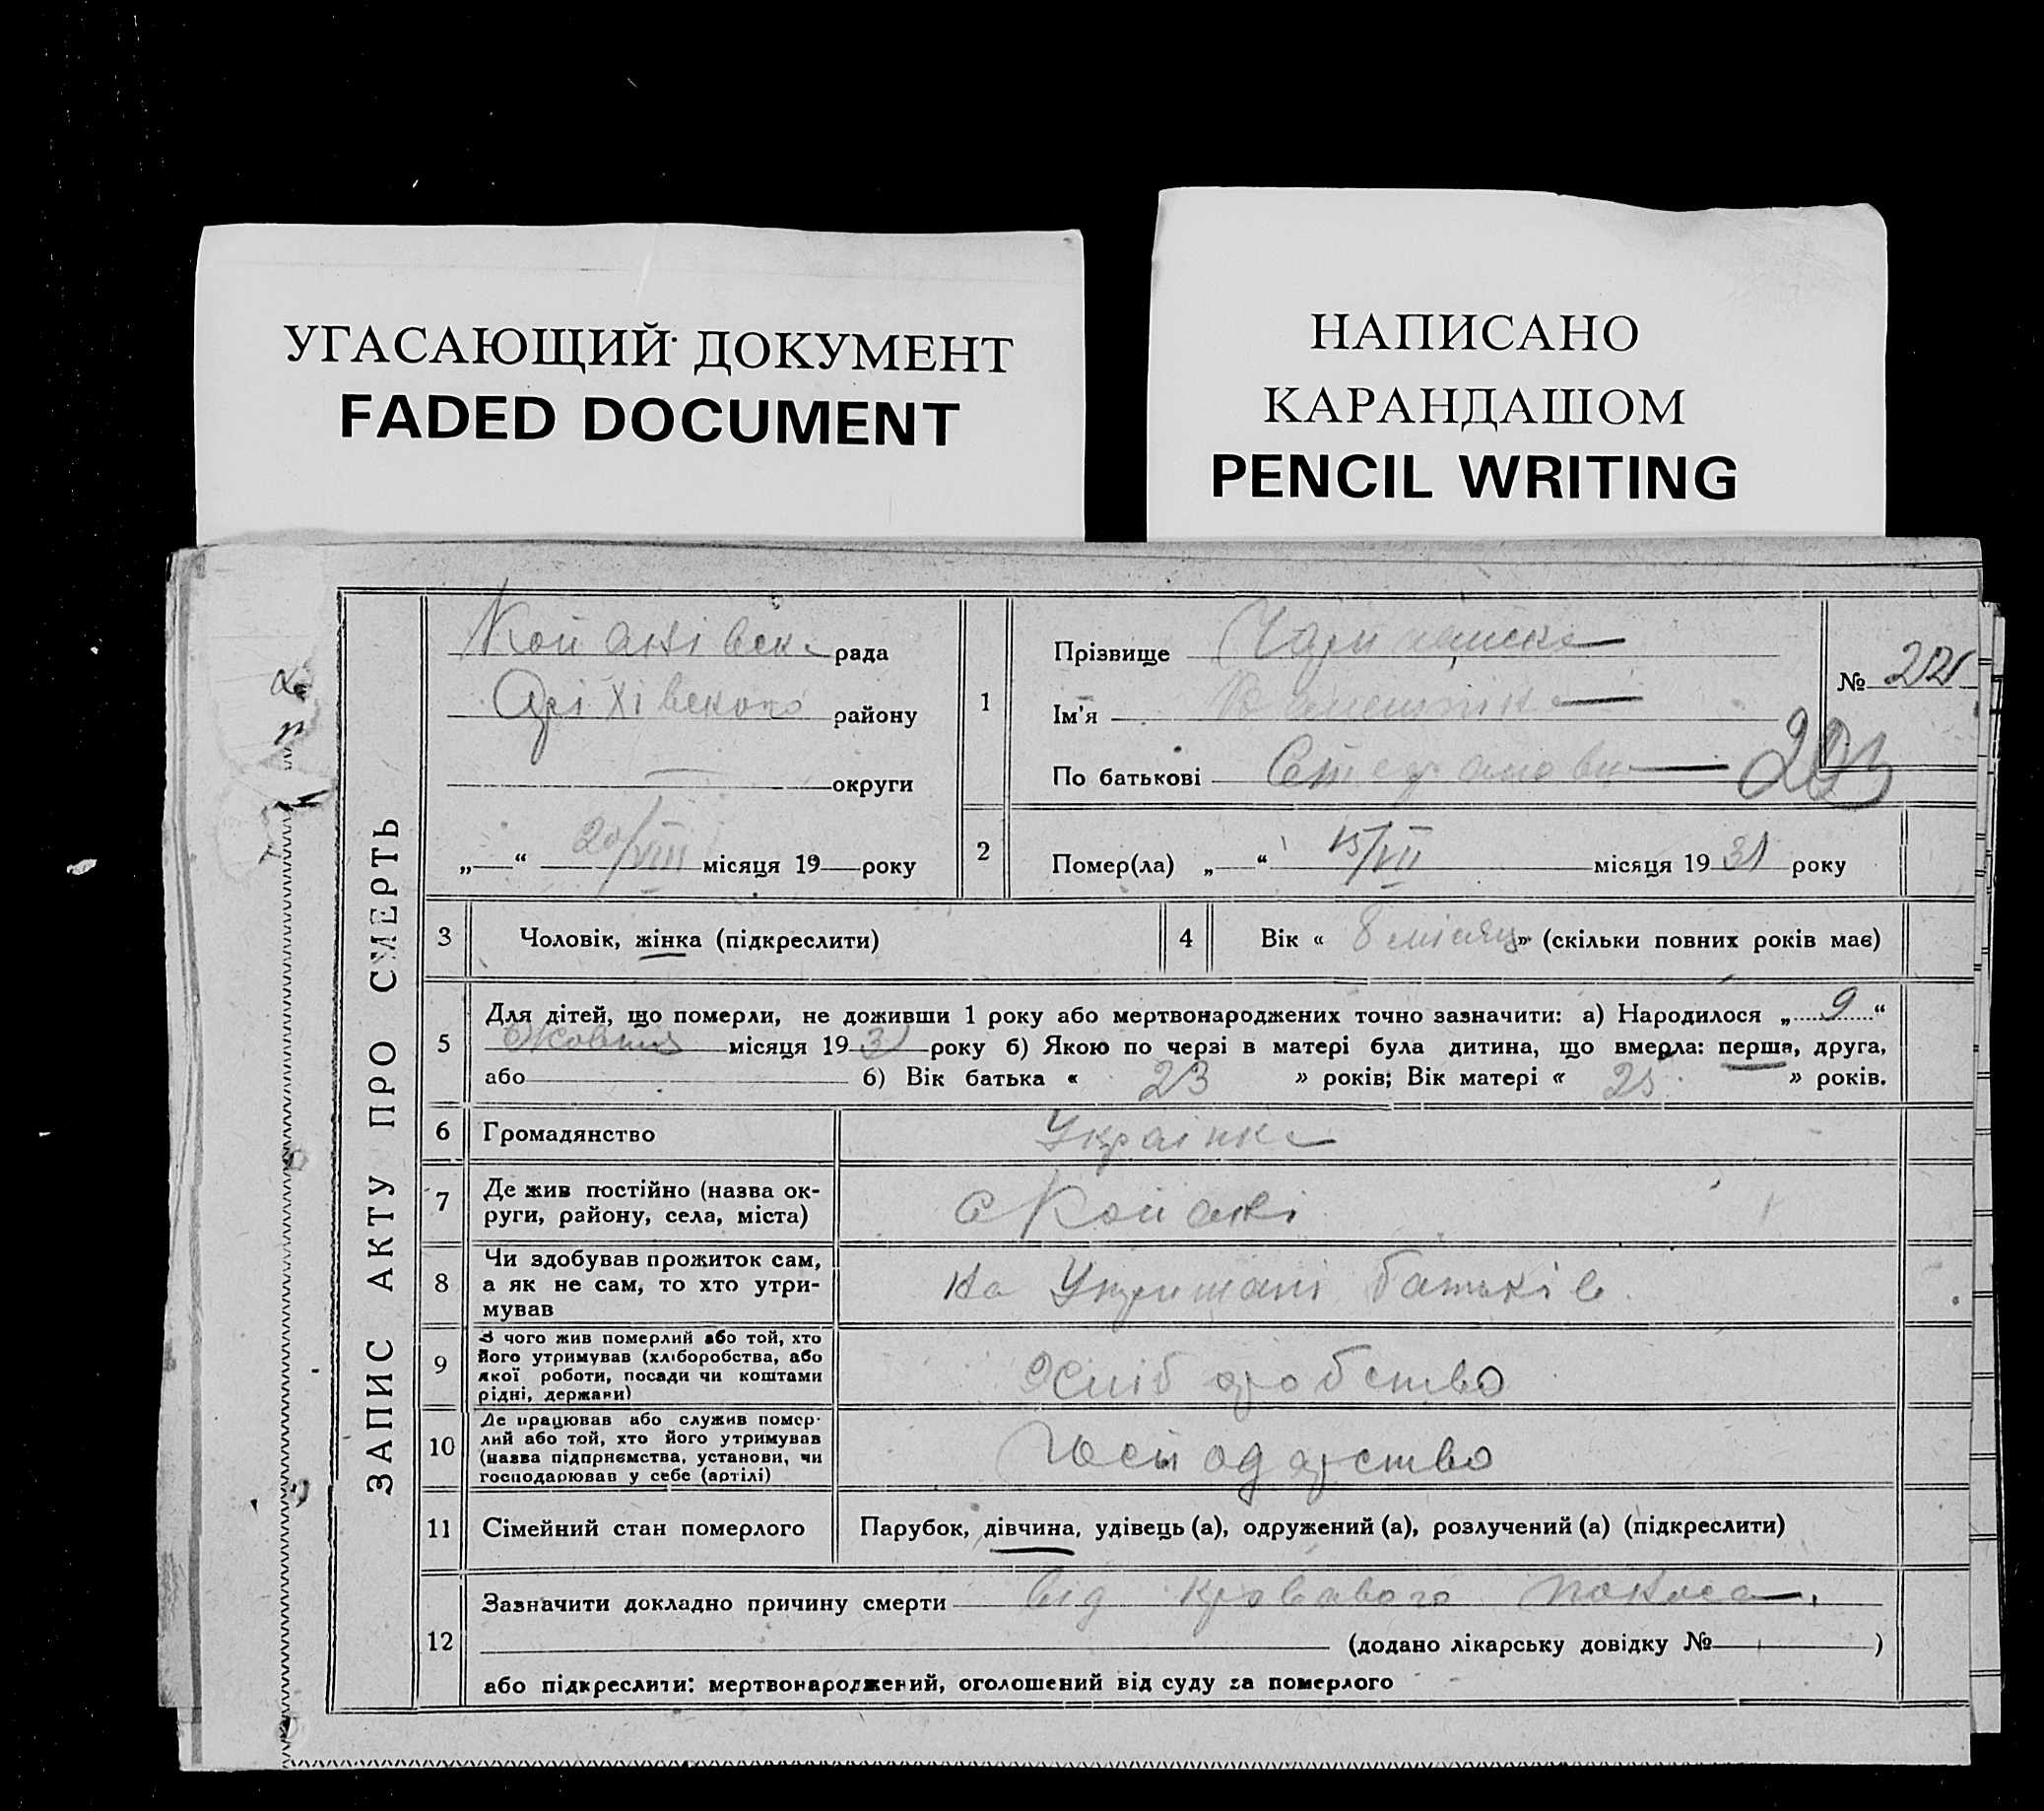 УГАСАЮЩИЙ ДОКУМЕНТ
FADED DOCUMENT
НАПИСАНО
КАРАНДАШОМ
PENCIL WRITING
ЗАПИС АКТУ ПРО СМЕРТЬ
Копанівська рада
Оріхівського району
округи
„ “ 20/VIII місяця 19 року
1
Прізвище
Ім'я
По батькові Степановна
№
2
Помер(ла) „ “ 15/VII місяця 1931 року
3 Чоловік, жінка (підкреслити)
4 Вік « 8 місяц » (скільки повних років має)
5 Для дітей, що померли, не доживши 1 року або мертвонароджених точно зазначити: а) Народилося „ 9 “
Жовтня місяця 193 року б) Якою по черзі в матері була дитина, що вмерла: перша, друга,
або б) Вік батька « 23 » років; Вік матері « 25 » років.
6 Громадянство Українка
7 Де жив постійно (назва ок-
руги, району, села, міста) с Копані
8 Чи здобував прожиток сам,
а як не сам, то хто утри-
мував
На Утримані батьків
9 З чого жив померлий або той, хто
його утримував (хліборобства, або
якої роботи, посади чи коштами
рідні, держави)
Хліборобство
10 Де працював або служив помер-
лий або той, хто його утримував
(назва підприємства, установи, чи
господарював у себе (артілі)
Господарство
11 Сімейний стан померлого Парубок, дівчина, удівець (а), одружений (а), розлучений (а) (підкреслити)
12 Зазначити докладно причину смерти від кровавого поноса
(додано лікарську довідку № )
або підкреслити: мертвонароджений, оголошений від суду за померлого